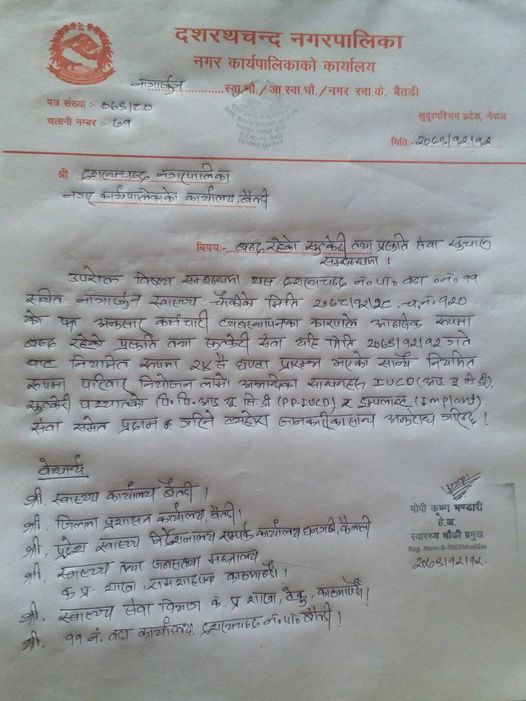 दशरथचन्द नगरपालिका
नगर कार्यपालिकाको कार्यालय
नागार्जुन स्वा.चौ./आ.स्वा.चौ./नगर स्वा.के. बैतडी
पत्र संख्या :- ०७९/८०
चलानी नम्बर :- ७१
सुदूरपश्चिम प्रदेश, नेपाल
मितिः- २०७९/१२/१२
श्री दशरथचन्द नगरपालिका
नगर कार्यपालिकाको कार्यालय, बैतडी
विषयः- बन्द रहेको सुत्केरी तथा प्रसूति सेवा सुचारु
सम्बन्धमा ।
उपरोक्त विषय सम्बन्धमा यस दशरथचन्द न.पा. वडा नं. ११
स्थित नागार्जुन स्वास्थ्य चौकीको मिति २०७८/१२/२८ च.नं. १२०
को पत्र अनुसार कर्मचारी व्यवस्थापनका कारणले आकस्मिक रूपमा
बन्द रहेको प्रसूति तथा सुत्केरी सेवा यहि मिति २०७९/१२/१२ गते
बाट नियमित रूपमा २४सै घण्टा प्रारम्भ भएको साथै नियमित
रूपमा परिवार नियोजन लामो अवधिका साधनहरू IUCD (आइ यु सी डी),
सुत्केरी पश्चातको पि.पि. आइ यु सि डी (PP-IUCD) र इम्प्लान्ट (Implant)
सेवा समेत प्रदान गरिने व्यहोरा जानकारीका साथ अनुरोध गरिन्छ ।
बोधार्थ
श्री. स्वास्थ्य कार्यालय बैतडी ।
श्री. जिल्ला प्रशासन कार्यालय, बैतडी ।
श्री. प्रदेश स्वास्थ्य निर्देशनालय सम्पर्क कार्यालय धनगढी, कैलाली
श्री. स्वास्थ्य तथा जनसंख्या मन्त्रालय
क.प्र. शाखा, रामशाहपथ काठमाण्डौ ।
श्री. स्वास्थ्य सेवा विभाग क. प्र शाखा, टेकु, काठमाण्डौ ।
श्री. ११ नं. वडा कार्यालय, दशरथचन्द न.पा. बैतडी ।
गोपी कृष्ण भण्डारी
हे.अ.
स्वास्थ्य चौकी प्रमुख
Reg. Num-B-7902MedGen
२०७९/१२/१२